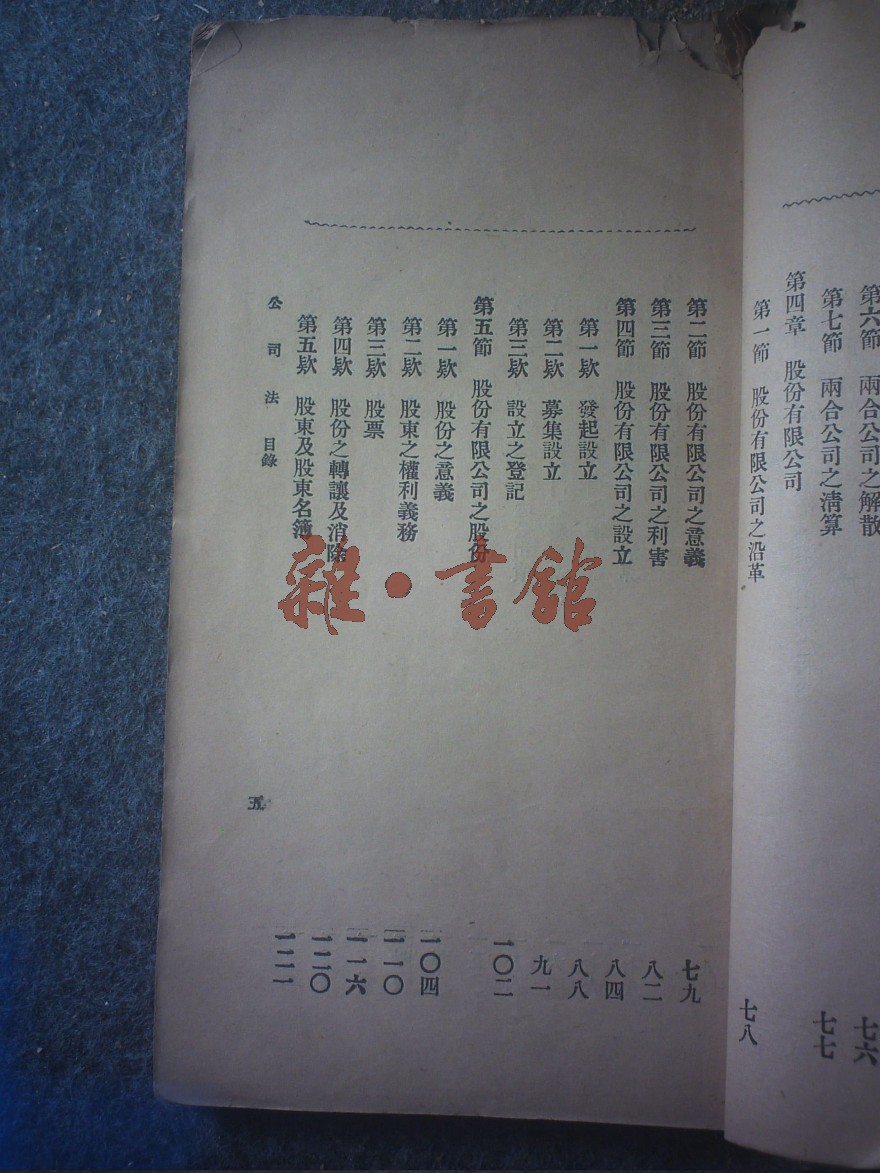 第六節 兩合公司之解散 七六
第七節 兩合公司之清算 七七
第四章 股份有限公司
第一節 股份有限公司之沿革 七八
第二節 股份有限公司之意義 七九
第三節 股份有限公司之利害 八二
第四節 股份有限公司之設立 八四
第一欵 發起設立 八八
第二欵 募集設立 九一
第三欵 設立之登記 一〇二
第五節 股份有限公司之股份
第一欵 股份之意義 一〇四
第二欵 股東之權利義務 一一〇
第三欵 股票 一一六
第四欵 股份之轉讓及消除 一二〇
第五欵 股東及股東名簿 一二一
公司法 目錄
五
雜·書館